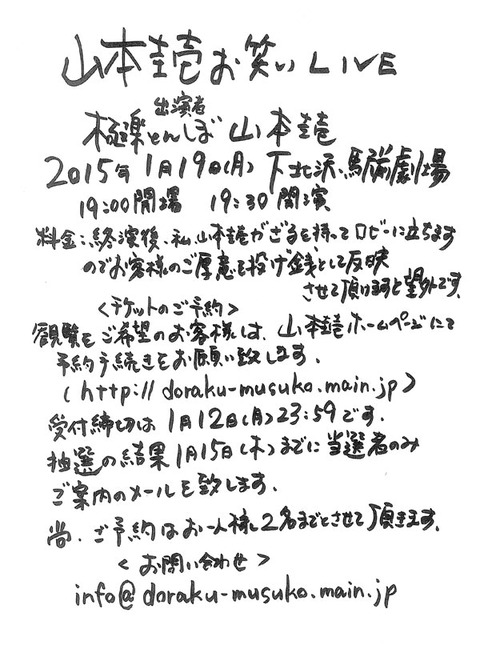 山本圭壱お笑いLIVE
出演者
極楽とんぼ 山本圭壱
2015年1月19日(月) 下北沢、駅前劇場
19:00開場 19:30開演
料金:終演後、私、山本圭壱がざるを持ってロビーに立ちます
のでお客様のご厚意を投げ銭として反映
させて頂けますと望外です。
<チケットのご予約>
観覧をご希望のお客様は、山本圭壱ホームページにて
予約手続きをお願い致します。
(http://doraku-musuko.main.jp)
受付締切は1月12日(月)23:59です。
抽選の結果1月15日(木)までに当選者のみ
ご案内のメールを致します。
尚、ご予約はお一人様2名までとさせて頂きます。
<お問い合わせ>
info@doraku-musuko.main.jp